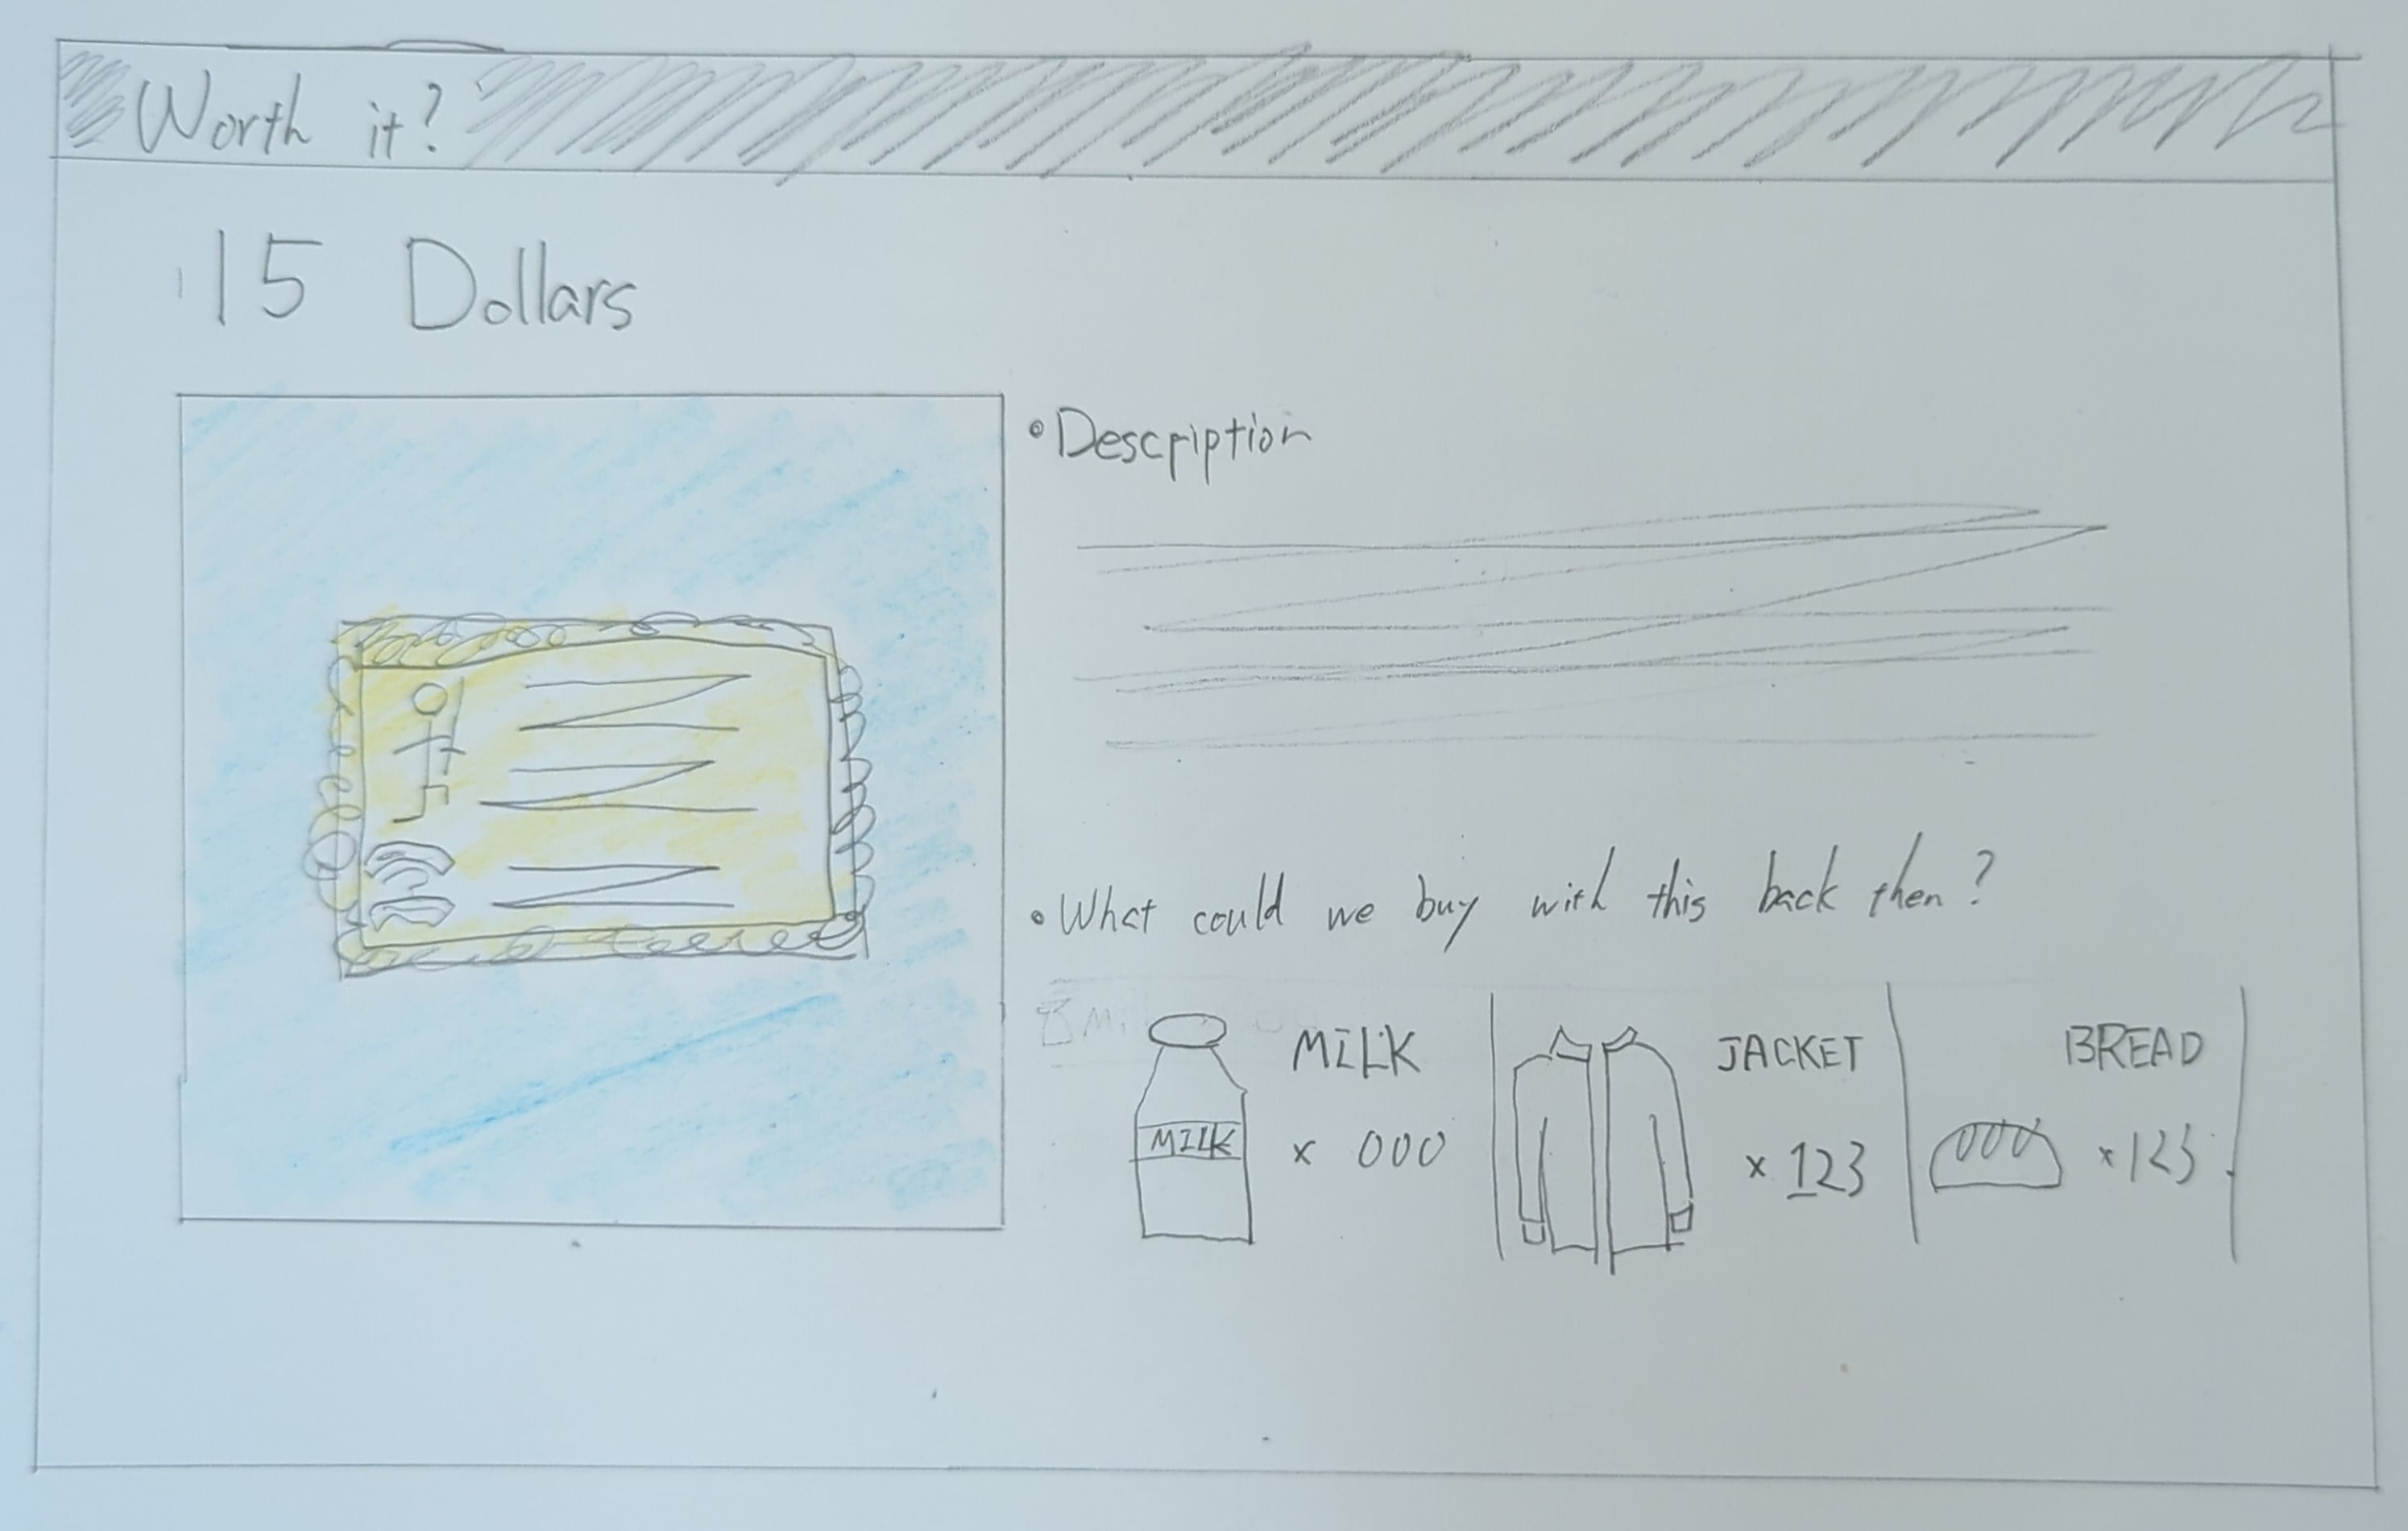 Worth it?
15 Dollars
• Description
• What could we buy with this back then?
MILK
MILK
x 000
JACKET
x 123
BREAD
x 123